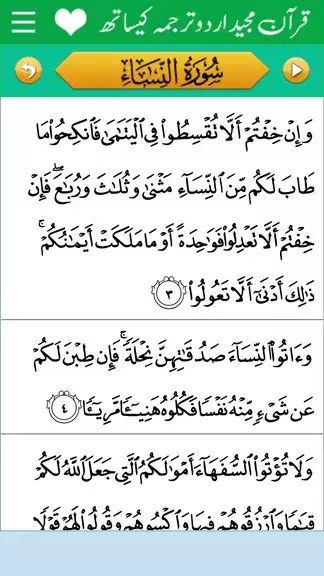 قرآن مجید اردو ترجمہ کیساتھ
سُورَةُ النِّسَاءِ
وَإِنْ خِفْتُمْ أَلَّا تُقْسِطُوا۟ فِى ٱلْيَتَٰمَىٰ فَٱنكِحُوا۟ مَا
طَابَ لَكُم مِّنَ ٱلنِّسَآءِ مَثْنَىٰ وَثُلَٰثَ وَرُبَٰعَ ۖ فَإِنْ
خِفْتُمْ أَلَّا تَعْدِلُوا۟ فَوَٰحِدَةً أَوْ مَا مَلَكَتْ أَيْمَٰنُكُمْ ۚ
ذَٰلِكَ أَدْنَىٰٓ أَلَّا تَعُولُوا۟ ٣
وَءَاتُوا۟ ٱلنِّسَآءَ صَدُقَٰتِهِنَّ نِحْلَةً ۚ فَإِن طِبْنَ لَكُمْ
عَن شَىْءٍ مِّنْهُ نَفْسًا فَكُلُوهُ هَنِيٓـًٔا مَّرِيٓـًٔا ٤
وَلَا تُؤْتُوا۟ ٱلسُّفَهَآءَ أَمْوَٰلَكُمُ ٱلَّتِى جَعَلَ ٱللَّهُ لَكُمْ
قِيَٰمًا وَٱرْزُقُوهُمْ فِيهَا وَٱكْسُوهُمْ وَقُولُوا۟ لَهُمْ قَوْلًا